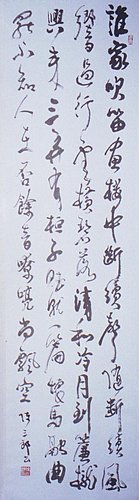 誰家吹笛畫樓中斷續聲隨斷續風
響遏行雲橫碧落清和冷月到簾櫳
興來三弄有桓子賦就一篇懷馬融曲
罷不知人在否餘音嘹喨尚飄空